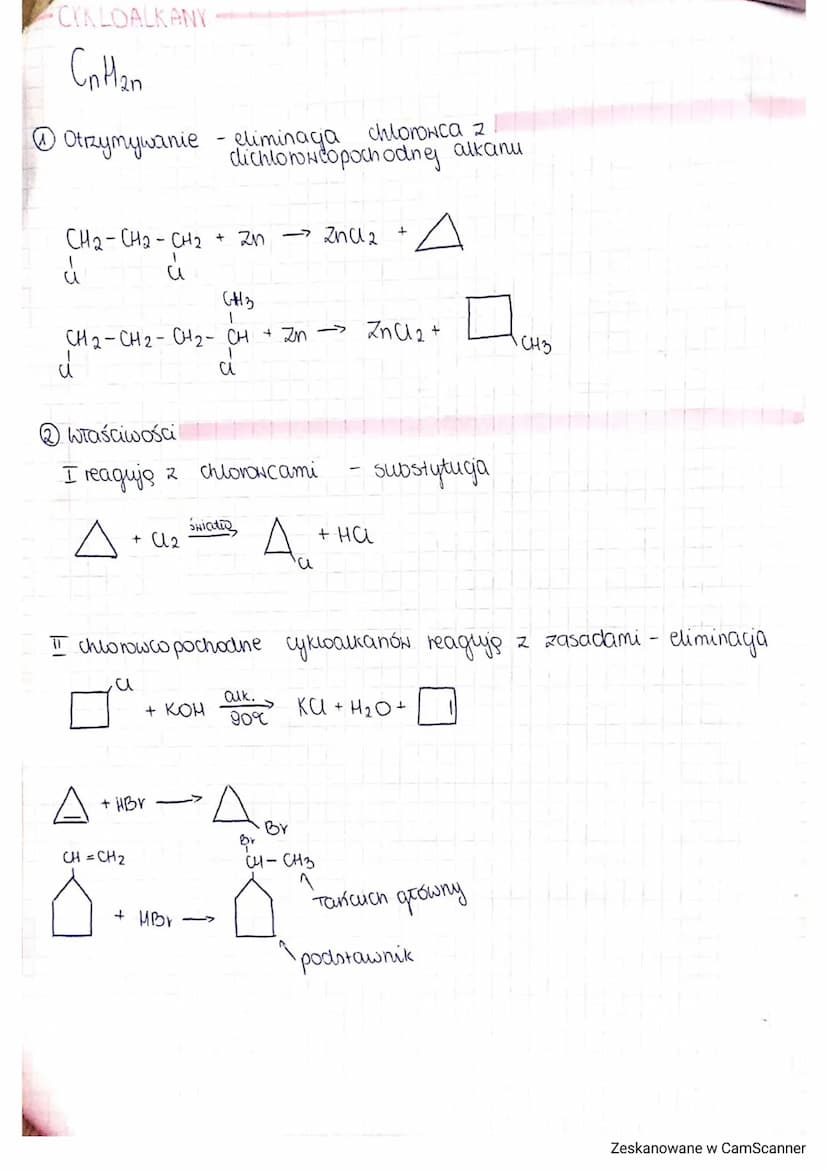 CYKLOALKANY
CnH2n
① Otrzymywanie - eliminacja chlorowca z
dichlorowcopochodnej alkanu
CH2-CH2-CH2 + Zn → ZnCl2 +
Cl Cl
CH3
CH2-CH2-CH2-CH + Zn → ZnCl2 +
CH3
Cl Cl
② Właściwości
I reagują z chlorowcami - substytucja
+ Cl2 światło → + HCl
Cl
II chlorowcopochodne cykloalkanów reagują z zasadami - eliminacja
Cl
+ KOH alk. 90°C → KCl + H2O +
+ HBr →
Br
Br
CH=CH2 CH-CH3
łańcuch główny
+ HBr →
podstawnik
Zeskanowane w CamScanner